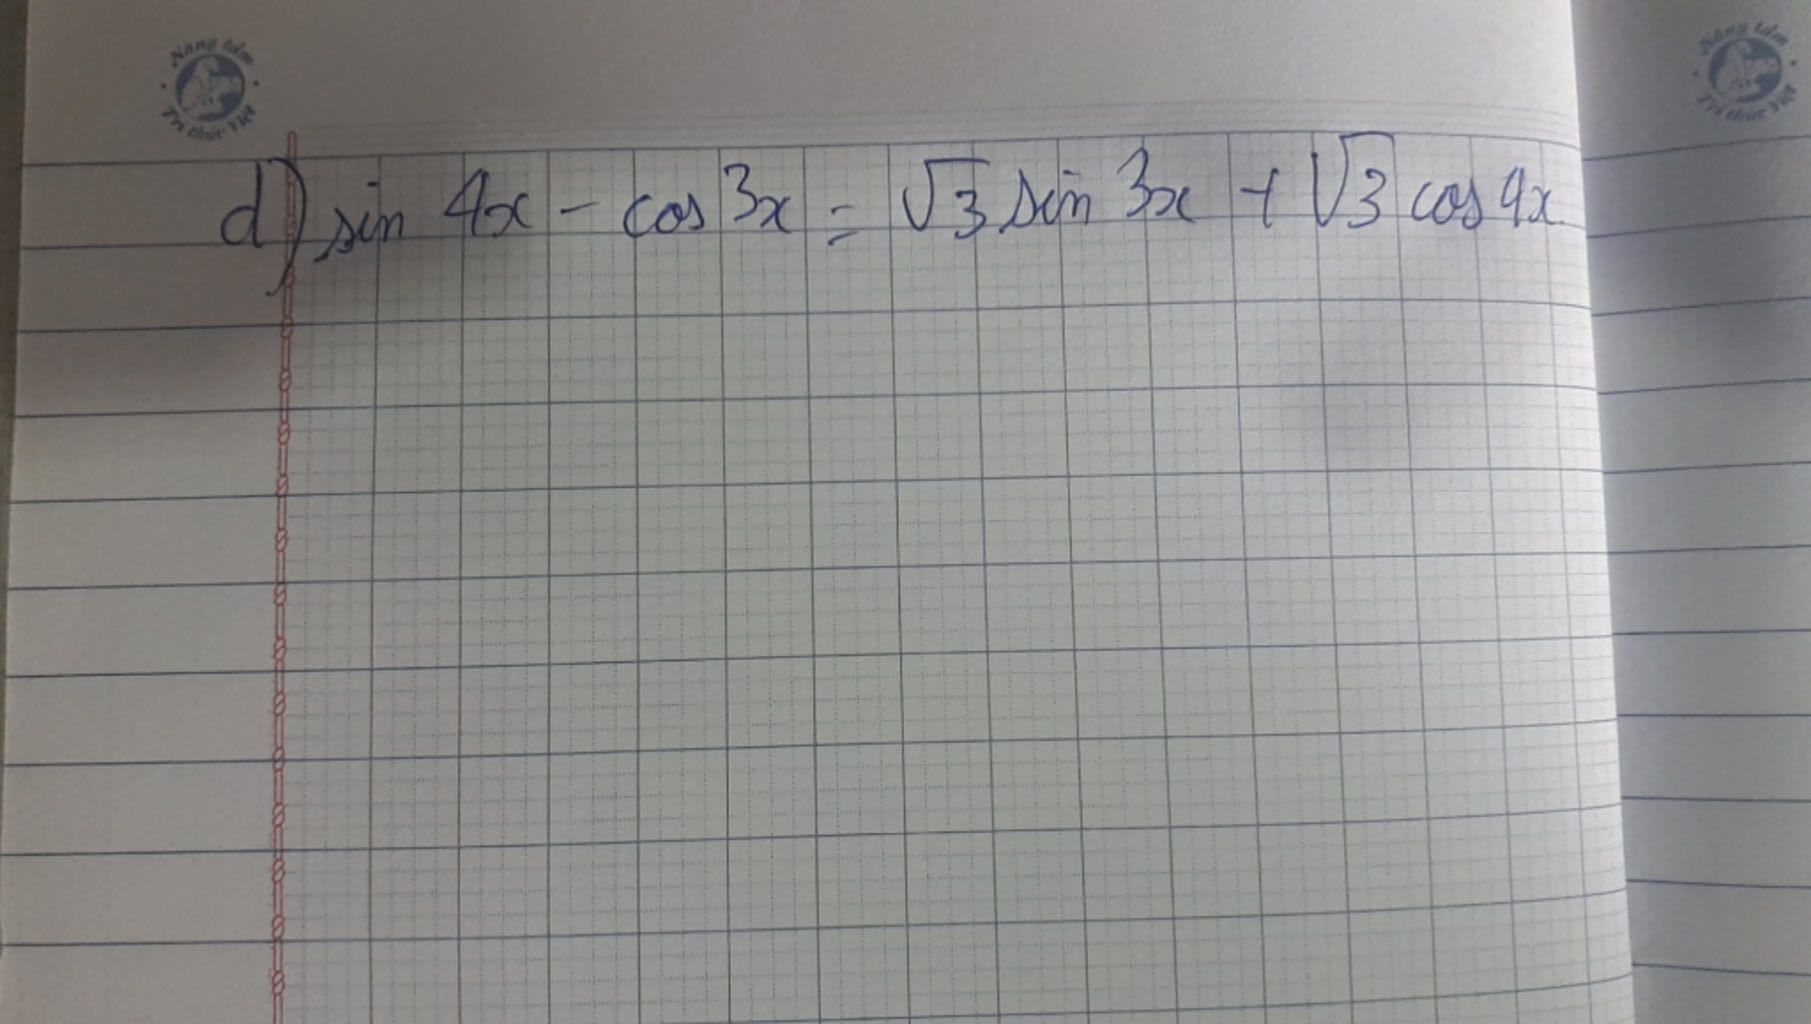 Nâng tầm
Tri thức Việt
Nâng tầm
Tri thức Việt
d) sin 4x - cos 3x = √3 sin 3x + √3 cos 4x